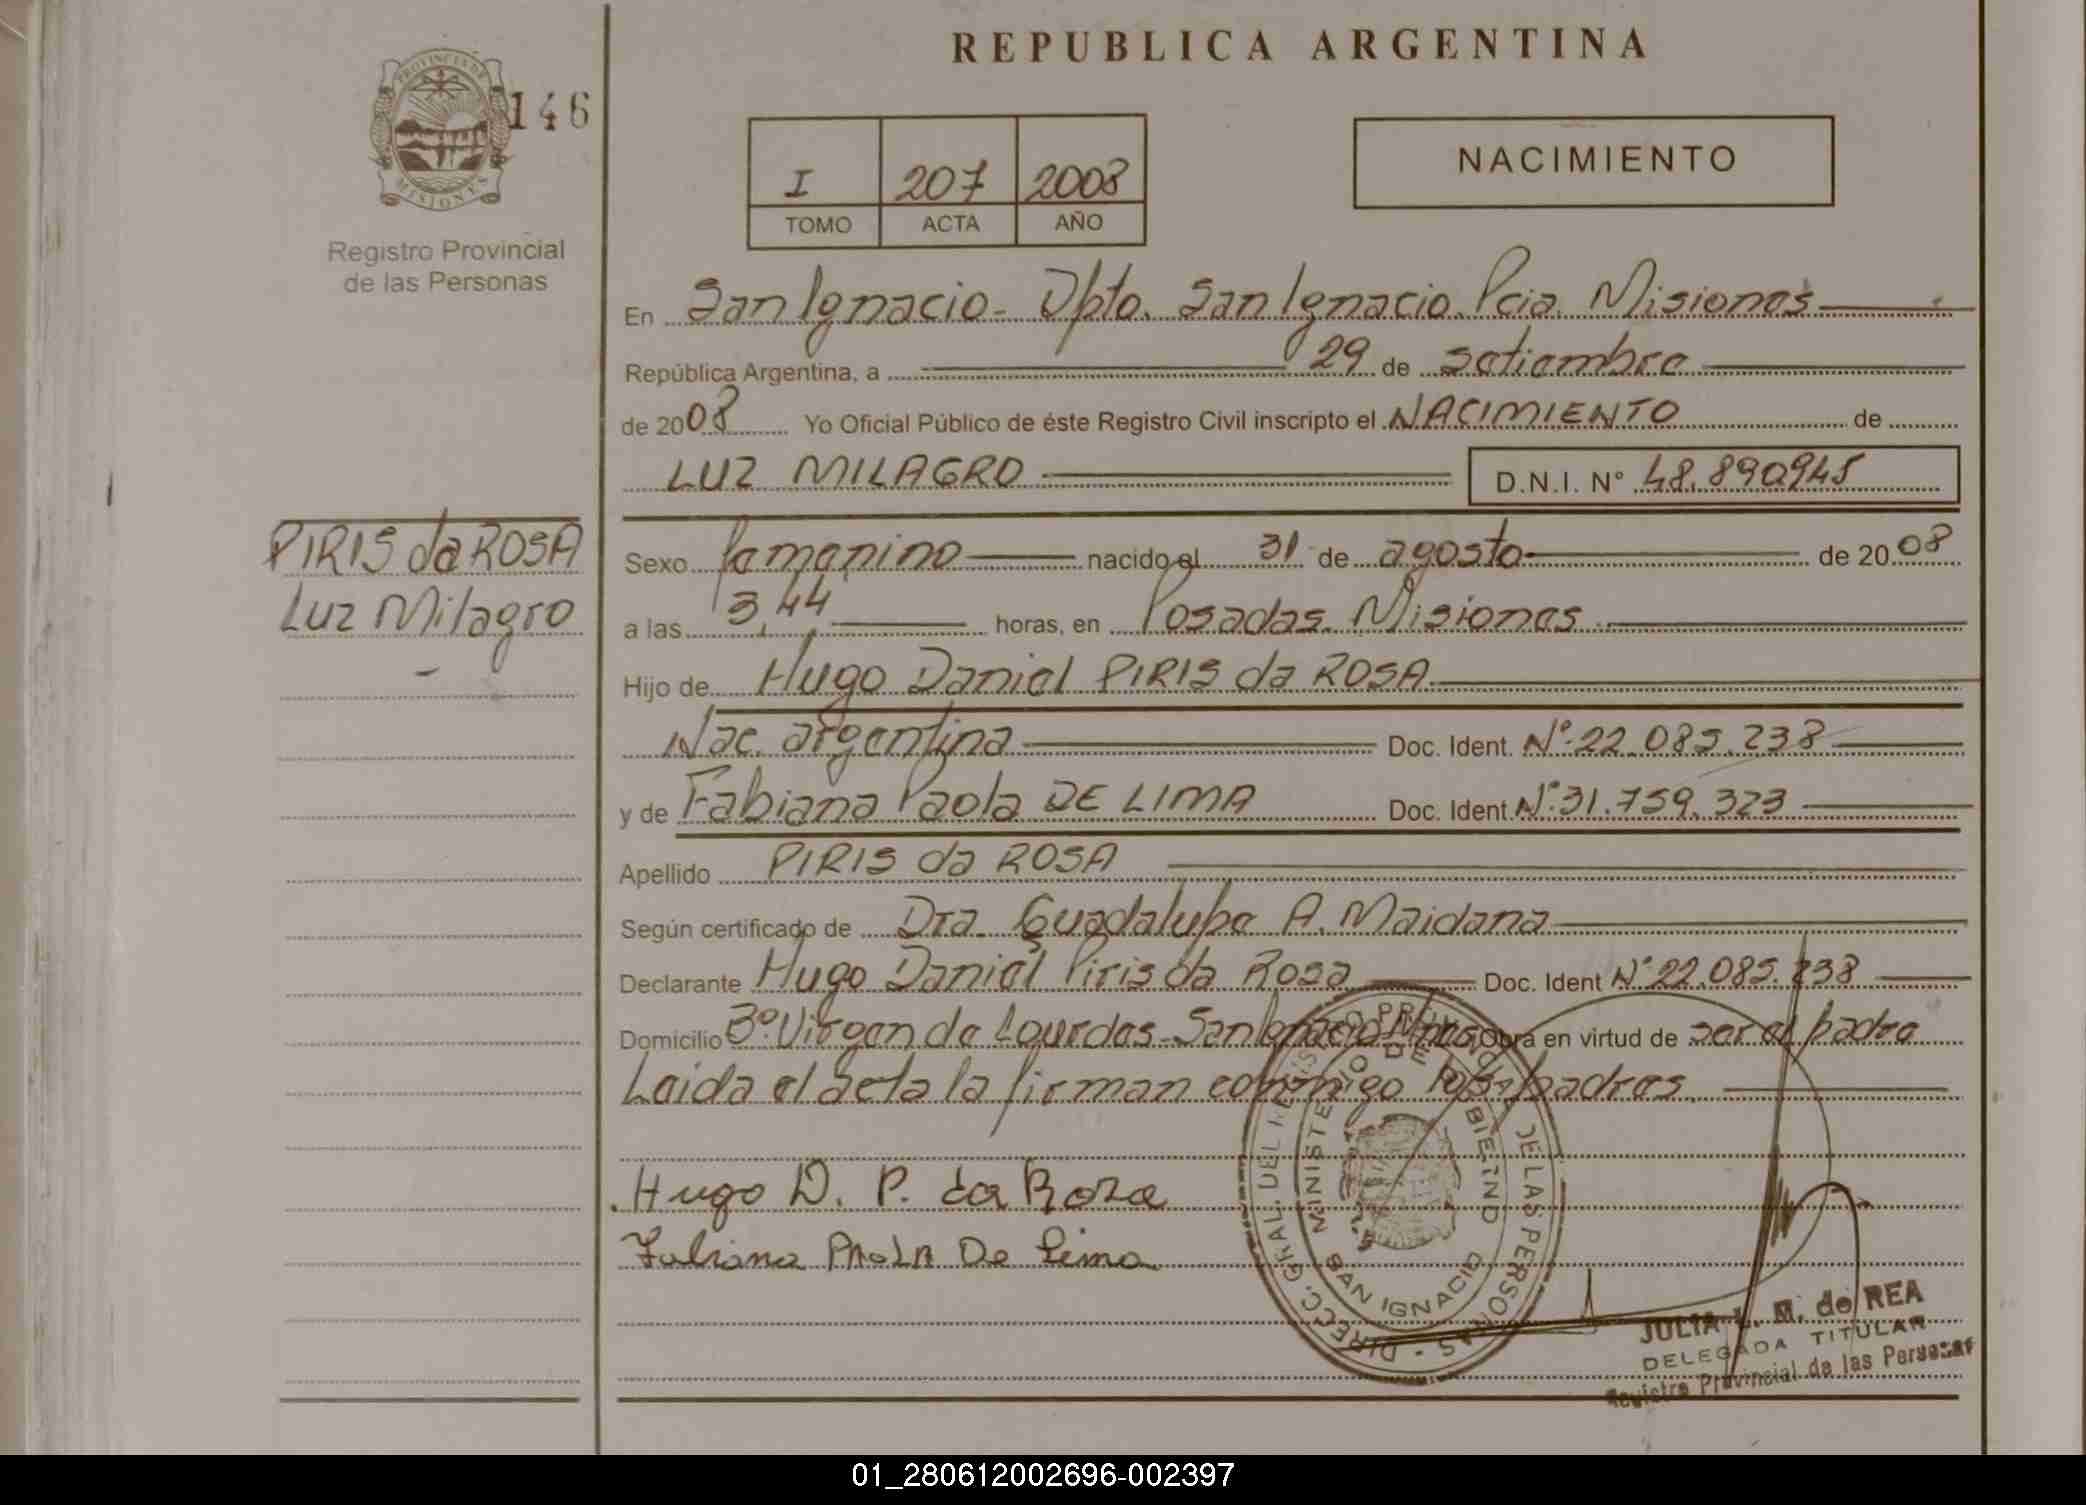 REPUBLICA ARGENTINA
PROVINCIA DE
MISIONES
146
Registro Provincial
de las Personas
I 207 2008
TOMO ACTA AÑO
NACIMIENTO
En San Ignacio - Dpto. San Ignacio. Pcia. Misiones
República Argentina, a 29 de setiembre
de 2008 Yo Oficial Público de éste Registro Civil inscripto el NACIMIENTO de
LUZ MILAGRO D.N.I. N° 48.890945
PIRIS da ROSA
Luz Milagro
Sexo femenino nacido el 31 de agosto de 2008
a las 3,44 horas, en Posadas. Misiones
Hijo de Hugo Daniel PIRIS da ROSA
Nac. argentina Doc. Ident. N°.22.085.238
y de Fabiana Paola DE LIMA Doc. Ident. N°.31.759.323
Apellido PIRIS da ROSA
Según certificado de Dra. Guadalupe A. Maidana
Declarante Hugo Daniel Piris da Rosa Doc. Ident N°.22.085.238
Domicilio B° Virgen de Lourdes - San Ignacio Obra en virtud de ser el padre
Leida el acta la firman conmigo los padres.
Hugo D. P. da Roza
Fabiana PAOLA De Lima
DIRECC. GRAL. DEL REGISTRO PROV. DE LAS PERSONAS -
MINISTERIO DE GOBIERNO
SAN IGNACIO
JULIA L. M. de REA
DELEGADA TITULAR
Registro Provincial de las Personas
01_280612002696-002397